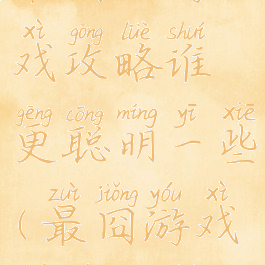 xì gōng lüè shuí
戏攻略谁
gèng cōng míng yī xiē
更聪明一些
zuì jiǒng yóu xì
(最囧游戏